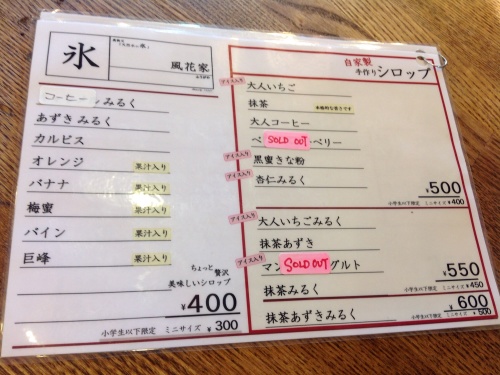 氷
風花家
コーヒーみるく
あずきみるく
カルピス
オレンジ 果汁入り
バナナ 果汁入り
梅蜜
パイン 果汁入り
巨峰 果汁入り
ちょっと贅沢
美味しいシロップ
¥400
小学生以下限定 ミニサイズ ¥300
自家製
手作りシロップ
アイス入り 大人いちご
抹茶 本格的な苦さです
大人コーヒー
ベ SOLD OUT ベリー
アイス入り 黒蜜きな粉
アイス入り 杏仁みるく
¥500
小学生以下限定 ミニサイズ ¥400
アイス入り 大人いちごみるく
抹茶あずき
アイス入り マン SOLD OUT グルト
¥550
抹茶みるく
小学生以下限定 ミニサイズ ¥450
¥600
抹茶あずきみるく
小学生以下限定 ミニサイズ ¥500